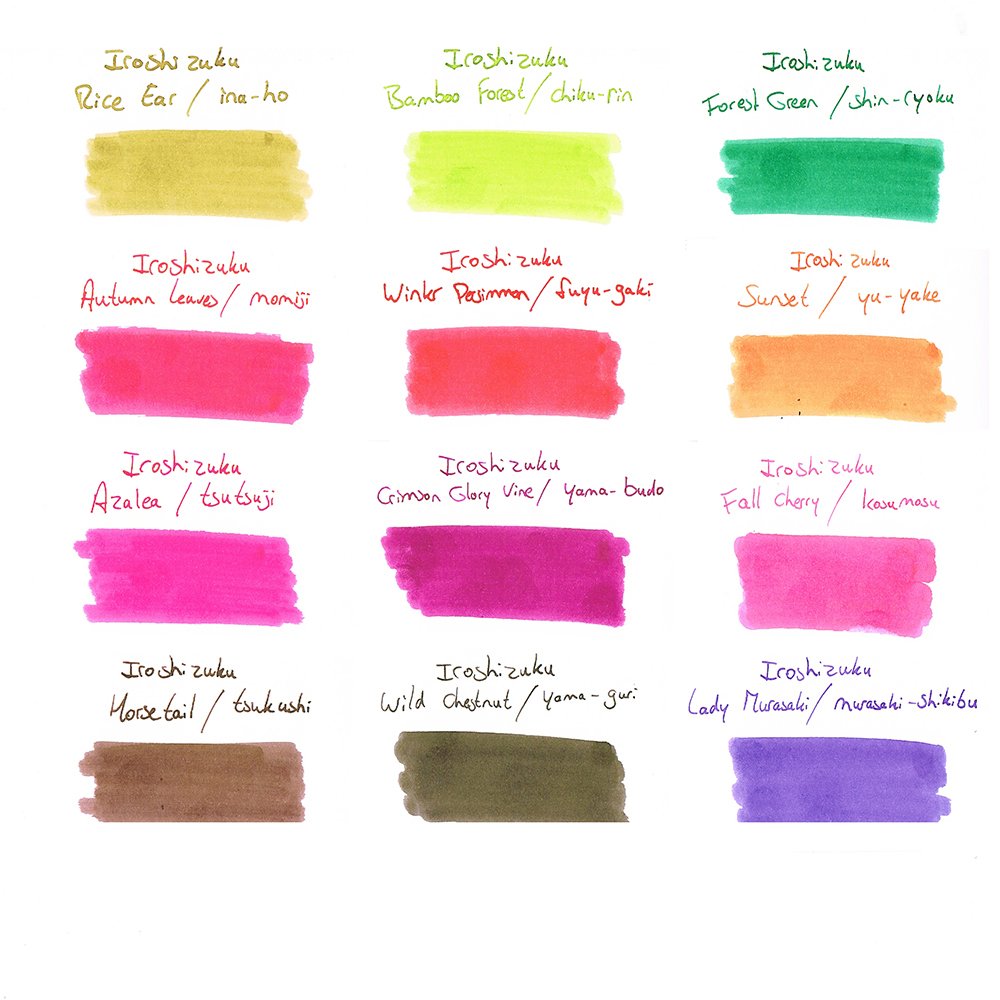 Iroshizuku
Rice Ear / ina-ho
Iroshizuku
Bamboo Forest / chiku-rin
Iroshizuku
Forest Green / shin-ryoku
Iroshizuku
Autumn leaves / momiji
Iroshizuku
Winter Persimmon / fuyu-gaki
Iroshizuku
Sunset / yu-yake
Iroshizuku
Azalea / tsutsuji
Iroshizuku
Crimson Glory Vine / yama-budo
Iroshizuku
Fall Cherry / kosumosu
Iroshizuku
Horsetail / tsukushi
Iroshizuku
Wild Chestnut / yama-guri
Iroshizuku
Lady Murasaki / murasaki-shikibu